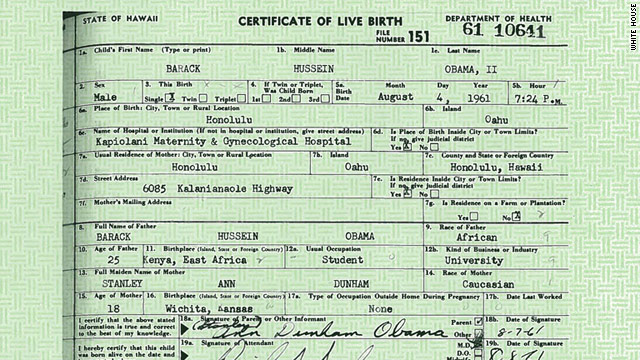 STATE OF HAWAII
CERTIFICATE OF LIVE BIRTH
DEPARTMENT OF HEALTH
FILE NUMBER 151 61 10641
1a. Child's First Name (Type or print) 1b. Middle Name 1c. Last Name
BARACK HUSSEIN OBAMA, II
2. Sex 3. This Birth 4. If Twin or Triplet, Was Child Born 5a. Birth Date Month Day Year 5b. Hour
Male Single X Twin Triplet 1st 2nd 3rd August 4, 1961 7:24 P.M.
6a. Place of Birth: City, Town or Rural Location 6b. Island
Honolulu Oahu
6c. Name of Hospital or Institution (If not in hospital or institution, give street address) 6d. Is Place of Birth Inside City or Town Limits? If no, give judicial district
Kapiolani Maternity & Gynecological Hospital Yes X No
7a. Usual Residence of Mother: City, Town or Rural Location 7b. Island 7c. County and State or Foreign Country
Honolulu Oahu Honolulu, Hawaii
7d. Street Address 7e. Is Residence Inside City or Town Limits? If no, give judicial district
6085 Kalanianaole Highway Yes X No
7f. Mother's Mailing Address 7g. Is Residence on a Farm or Plantation?
Yes No X
8. Full Name of Father 9. Race of Father
BARACK HUSSEIN OBAMA African
10. Age of Father 11. Birthplace (Island, State or Foreign Country) 12a. Usual Occupation 12b. Kind of Business or Industry
25 Kenya, East Africa Student University
13. Full Maiden Name of Mother 14. Race of Mother
STANLEY ANN DUNHAM Caucasian
15. Age of Mother 16. Birthplace (Island, State or Foreign Country) 17a. Type of Occupation Outside Home During Pregnancy 17b. Date Last Worked
18 Wichita, Kansas None
I certify that the above stated information is true and correct to the best of my knowledge. 18a. Signature of Parent or Other Informant Parent Other 18b. Date of Signature
(Stanley) Ann Dunham Obama 8-7-61
I hereby certify that this child was born alive on the date and 19a. Signature of Attendant M.D. D.O. 19b. Date of Signature
WHITE HOUSE